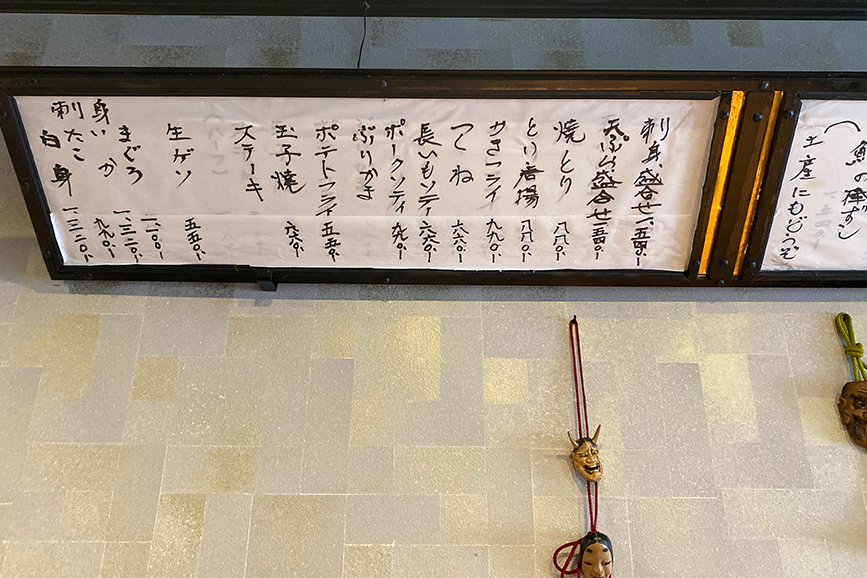 土産にもどうぞ
刺身盛合せ 一、五四〇ー
天ぷら盛合せ 一、五四〇ー
焼とり 八八〇ー
とり唐揚 八八〇ー
かきフライ 九九〇ー
つくね 六六〇ー
長いもソティ 六六〇ー
ポークソティ 九九〇ー
ぶりかま
ポテトフライ 五五〇ー
玉子焼 六六〇ー
ステーキ
生ゲソ 五五〇ー
刺身
まぐろ
いか 一、三二〇ー
たこ 九九〇ー
白身 一、三二〇ー